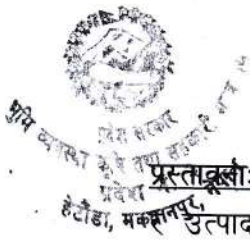 प्रदेश सरकार
भूमि व्यवस्था कृषि तथा सहकारी
प्रदेश
हेटौंडा, मकवानपुर,
प्रस्तावना:
उत्पाद